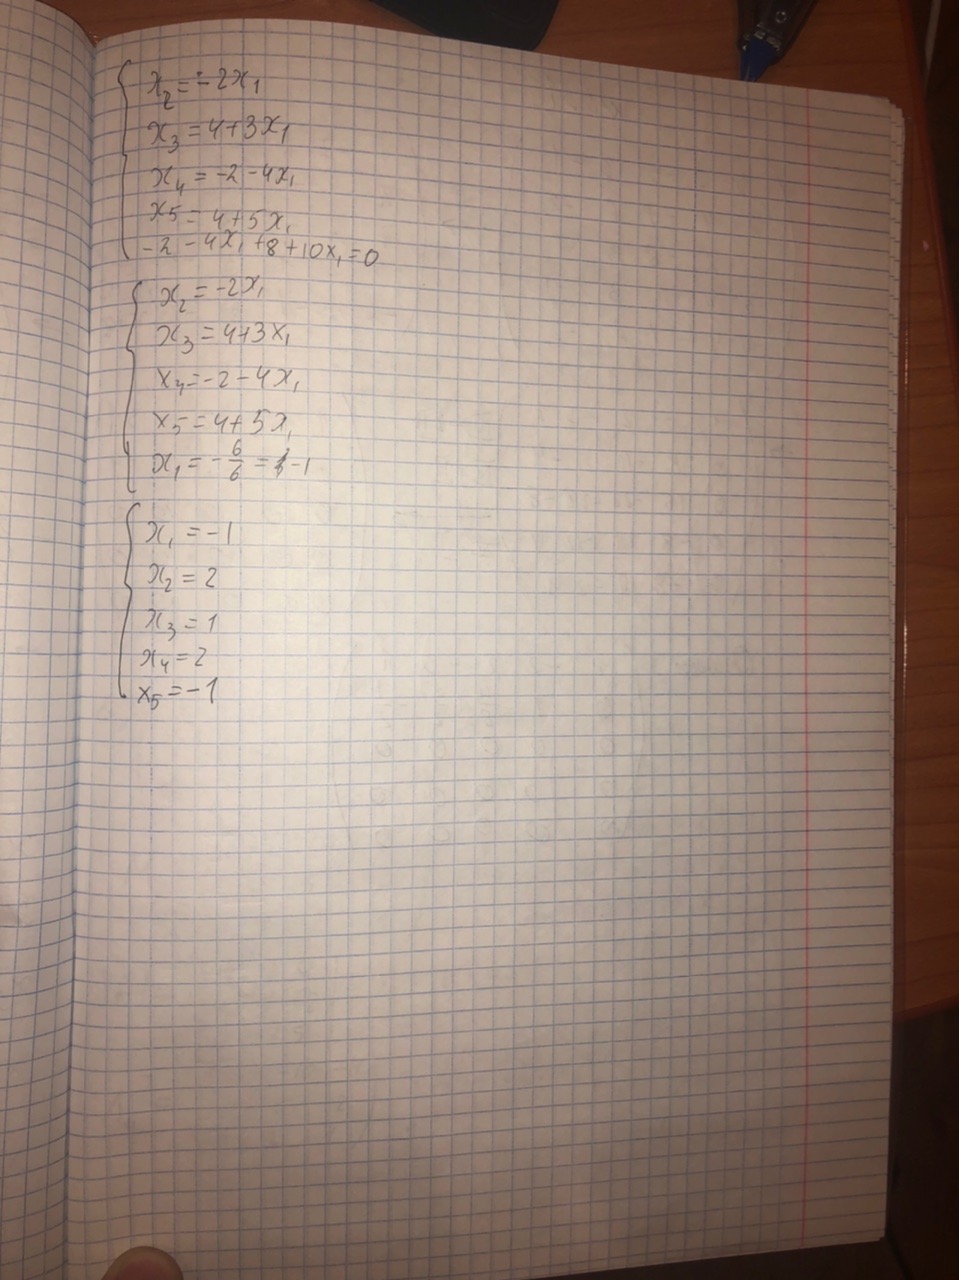 x₂ = -2x₁
x₃ = 4+3x₁
x₄ = -2-4x₁
x₅ = 4+5x₁
-2-4x₁+8+10x₁=0
x₂ = -2x₁
x₃ = 4+3x₁
x₄ = -2-4x₁
x₅ = 4+5x₁
x₁ = -6/6 = -1
x₁ = -1
x₂ = 2
x₃ = 1
x₄ = 2
x₅ = -1